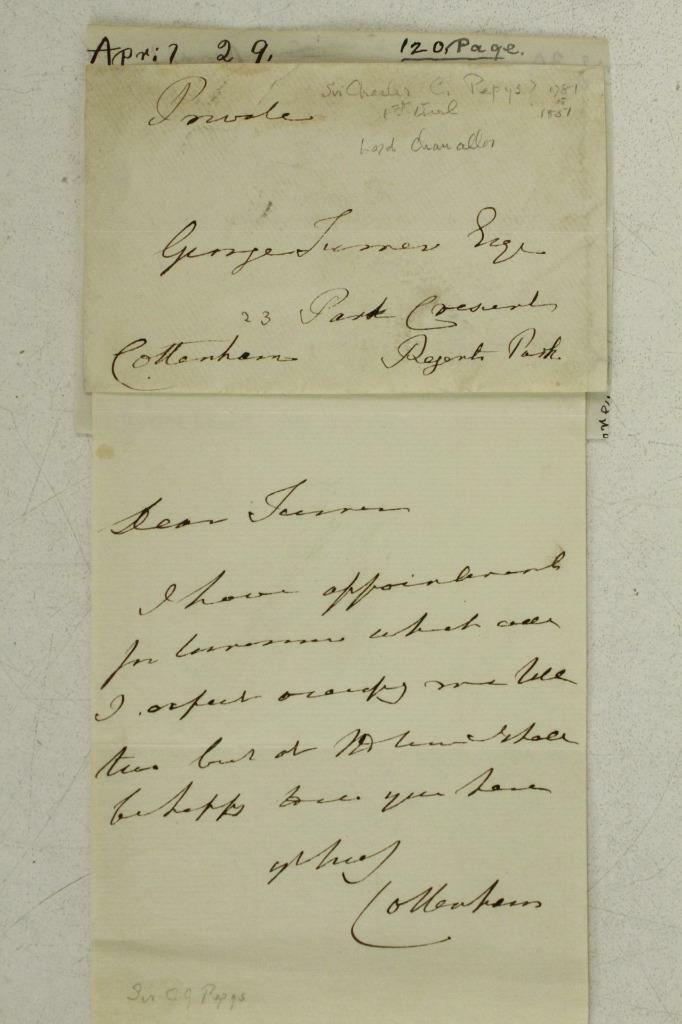 April 29. 120 Page.
Private
Sir Charles C. Pepys? 1781
1st Earl to 1851
Lord Chancellor
George Turner Esqe
23 Park Cresent
Cottenham Regents Park.
Dear Turner
I have appointments
for tomorrow which
I expect occupy me till
two but at that time I shall
be happy to see you here
Cottenham
Sir C G Pepys